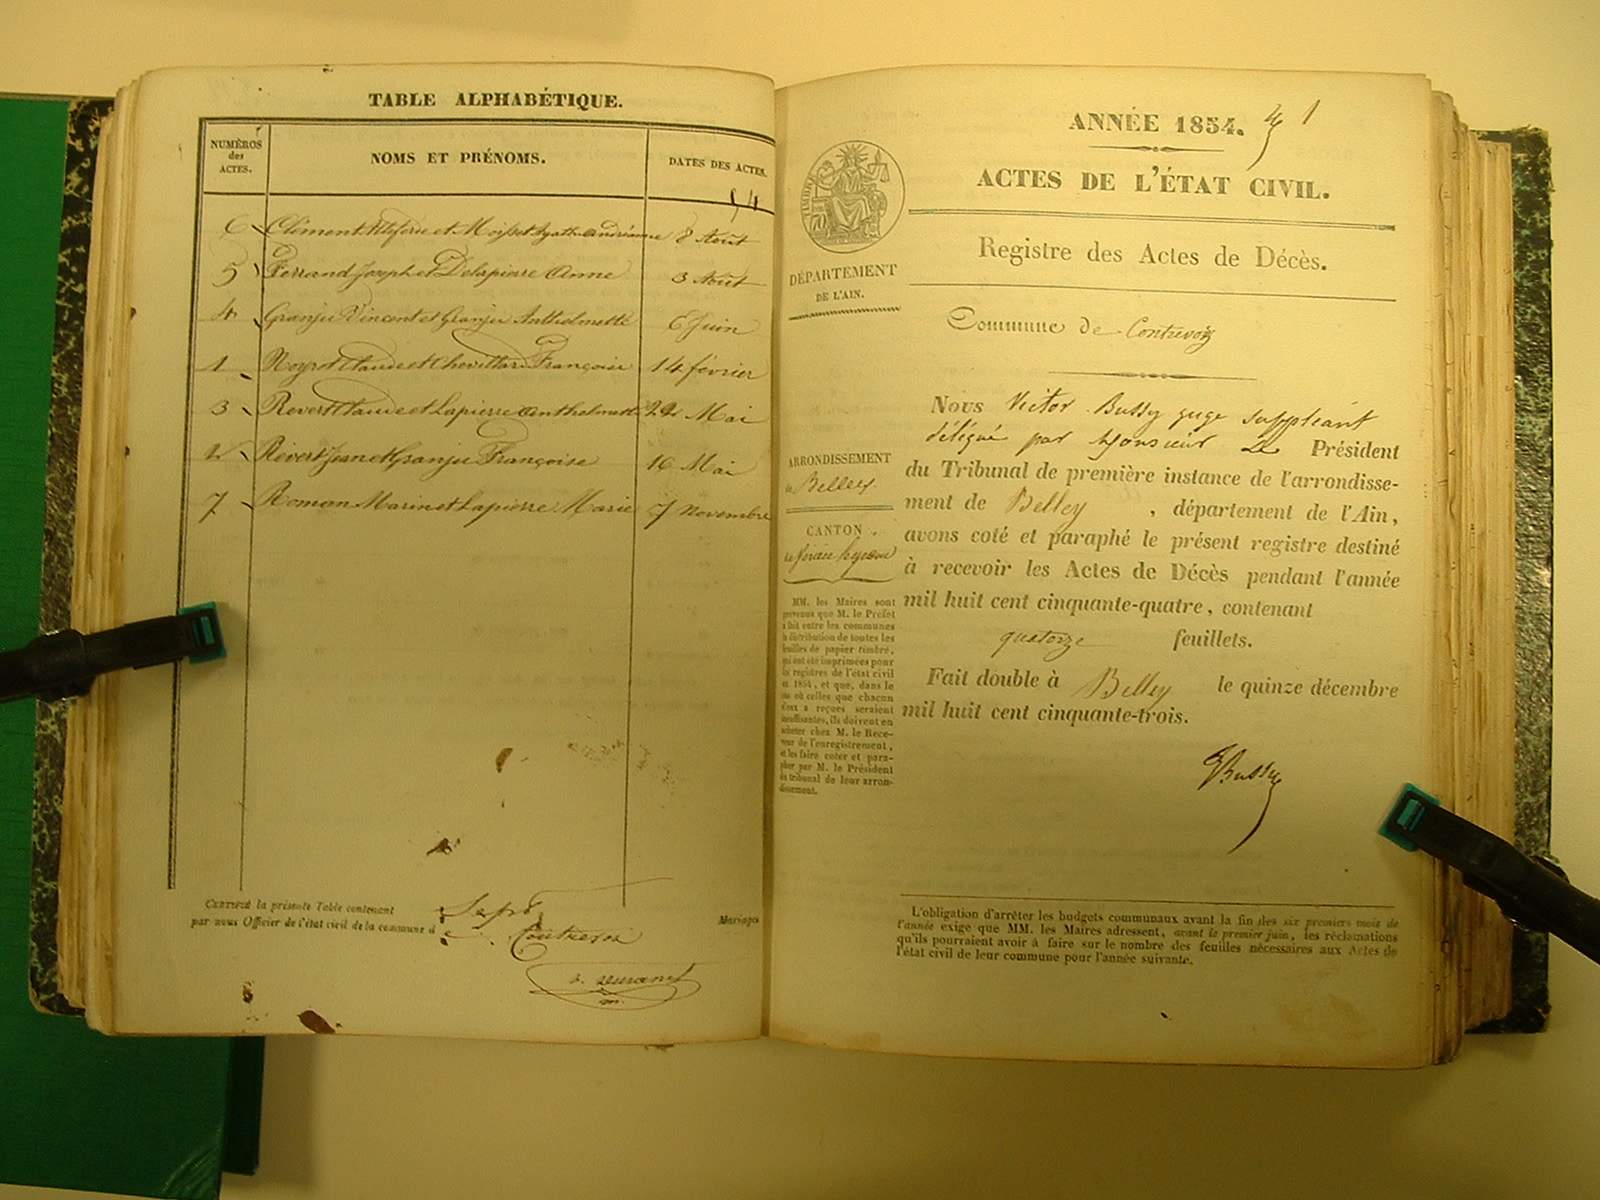 TABLE ALPHABÉTIQUE.
NUMÉROS
des
ACTES.
NOMS ET PRÉNOMS.
DATES DES ACTES.
54
6 Clément et Agathe Andréanne 8 Août
5 Ferrand Joseph et Delapierre Anne 3 Août
4 Granju Vincent et Granju Anthelmette 6 Juin
1 Noyrot Claude et Chevillard Françoise 14 février
3 Revert Claude et Lapierre Anthelmette 22 Mai
2 Revert Jean et Granju Françoise 16 Mai
7 Roman Marin et Lapierre Marie 7 Novembre
CERTIFIÉ la présente Table contenant Sept Mariages
par nous Officier de l'état civil de la commune de Contrevoz
m.
ANNÉE 1854. 1
ACTES DE L'ÉTAT CIVIL.
Registre des Actes de Décès.
TIMBRE
DÉPARTEMENT
DE L'AIN.
Commune de Contrevoz
Nous Victor Bussy juge suppléant
délégué par Monsieur Le Président
du Tribunal de première instance de l'arrondisse-
ment de Belley, département de l'Ain,
avons coté et paraphé le présent registre destiné
à recevoir les Actes de Décès pendant l'année
mil huit cent cinquante-quatre, contenant
quatorze feuillets.
Fait double à Belley le quinze décembre
mil huit cent cinquante-trois.
VBussy
ARRONDISSEMENT
de Belley
CANTON
de
MM. les Maires sont
prévenus que M. le Préfet
a fait entre les communes
la distribution de toutes les
feuilles de papier timbré,
qui ont été imprimées pour
les registres de l'état civil
de 1854, et que, dans le
cas où celles que chacun
d'eux a reçues seraient
insuffisantes, ils doivent en
acheter chez M. le Rece-
veur de l'enregistrement,
et les faire coter et para-
pher par M. le Président
du tribunal de leur arron-
dissement.
L'obligation d'arrêter les budgets communaux avant la fin des six premiers mois de
l'année exige que MM. les Maires adressent, avant le premier juin, les réclamations
qu'ils pourraient avoir à faire sur le nombre des feuilles nécessaires aux Actes de
l'état civil de leur commune pour l'année suivante.